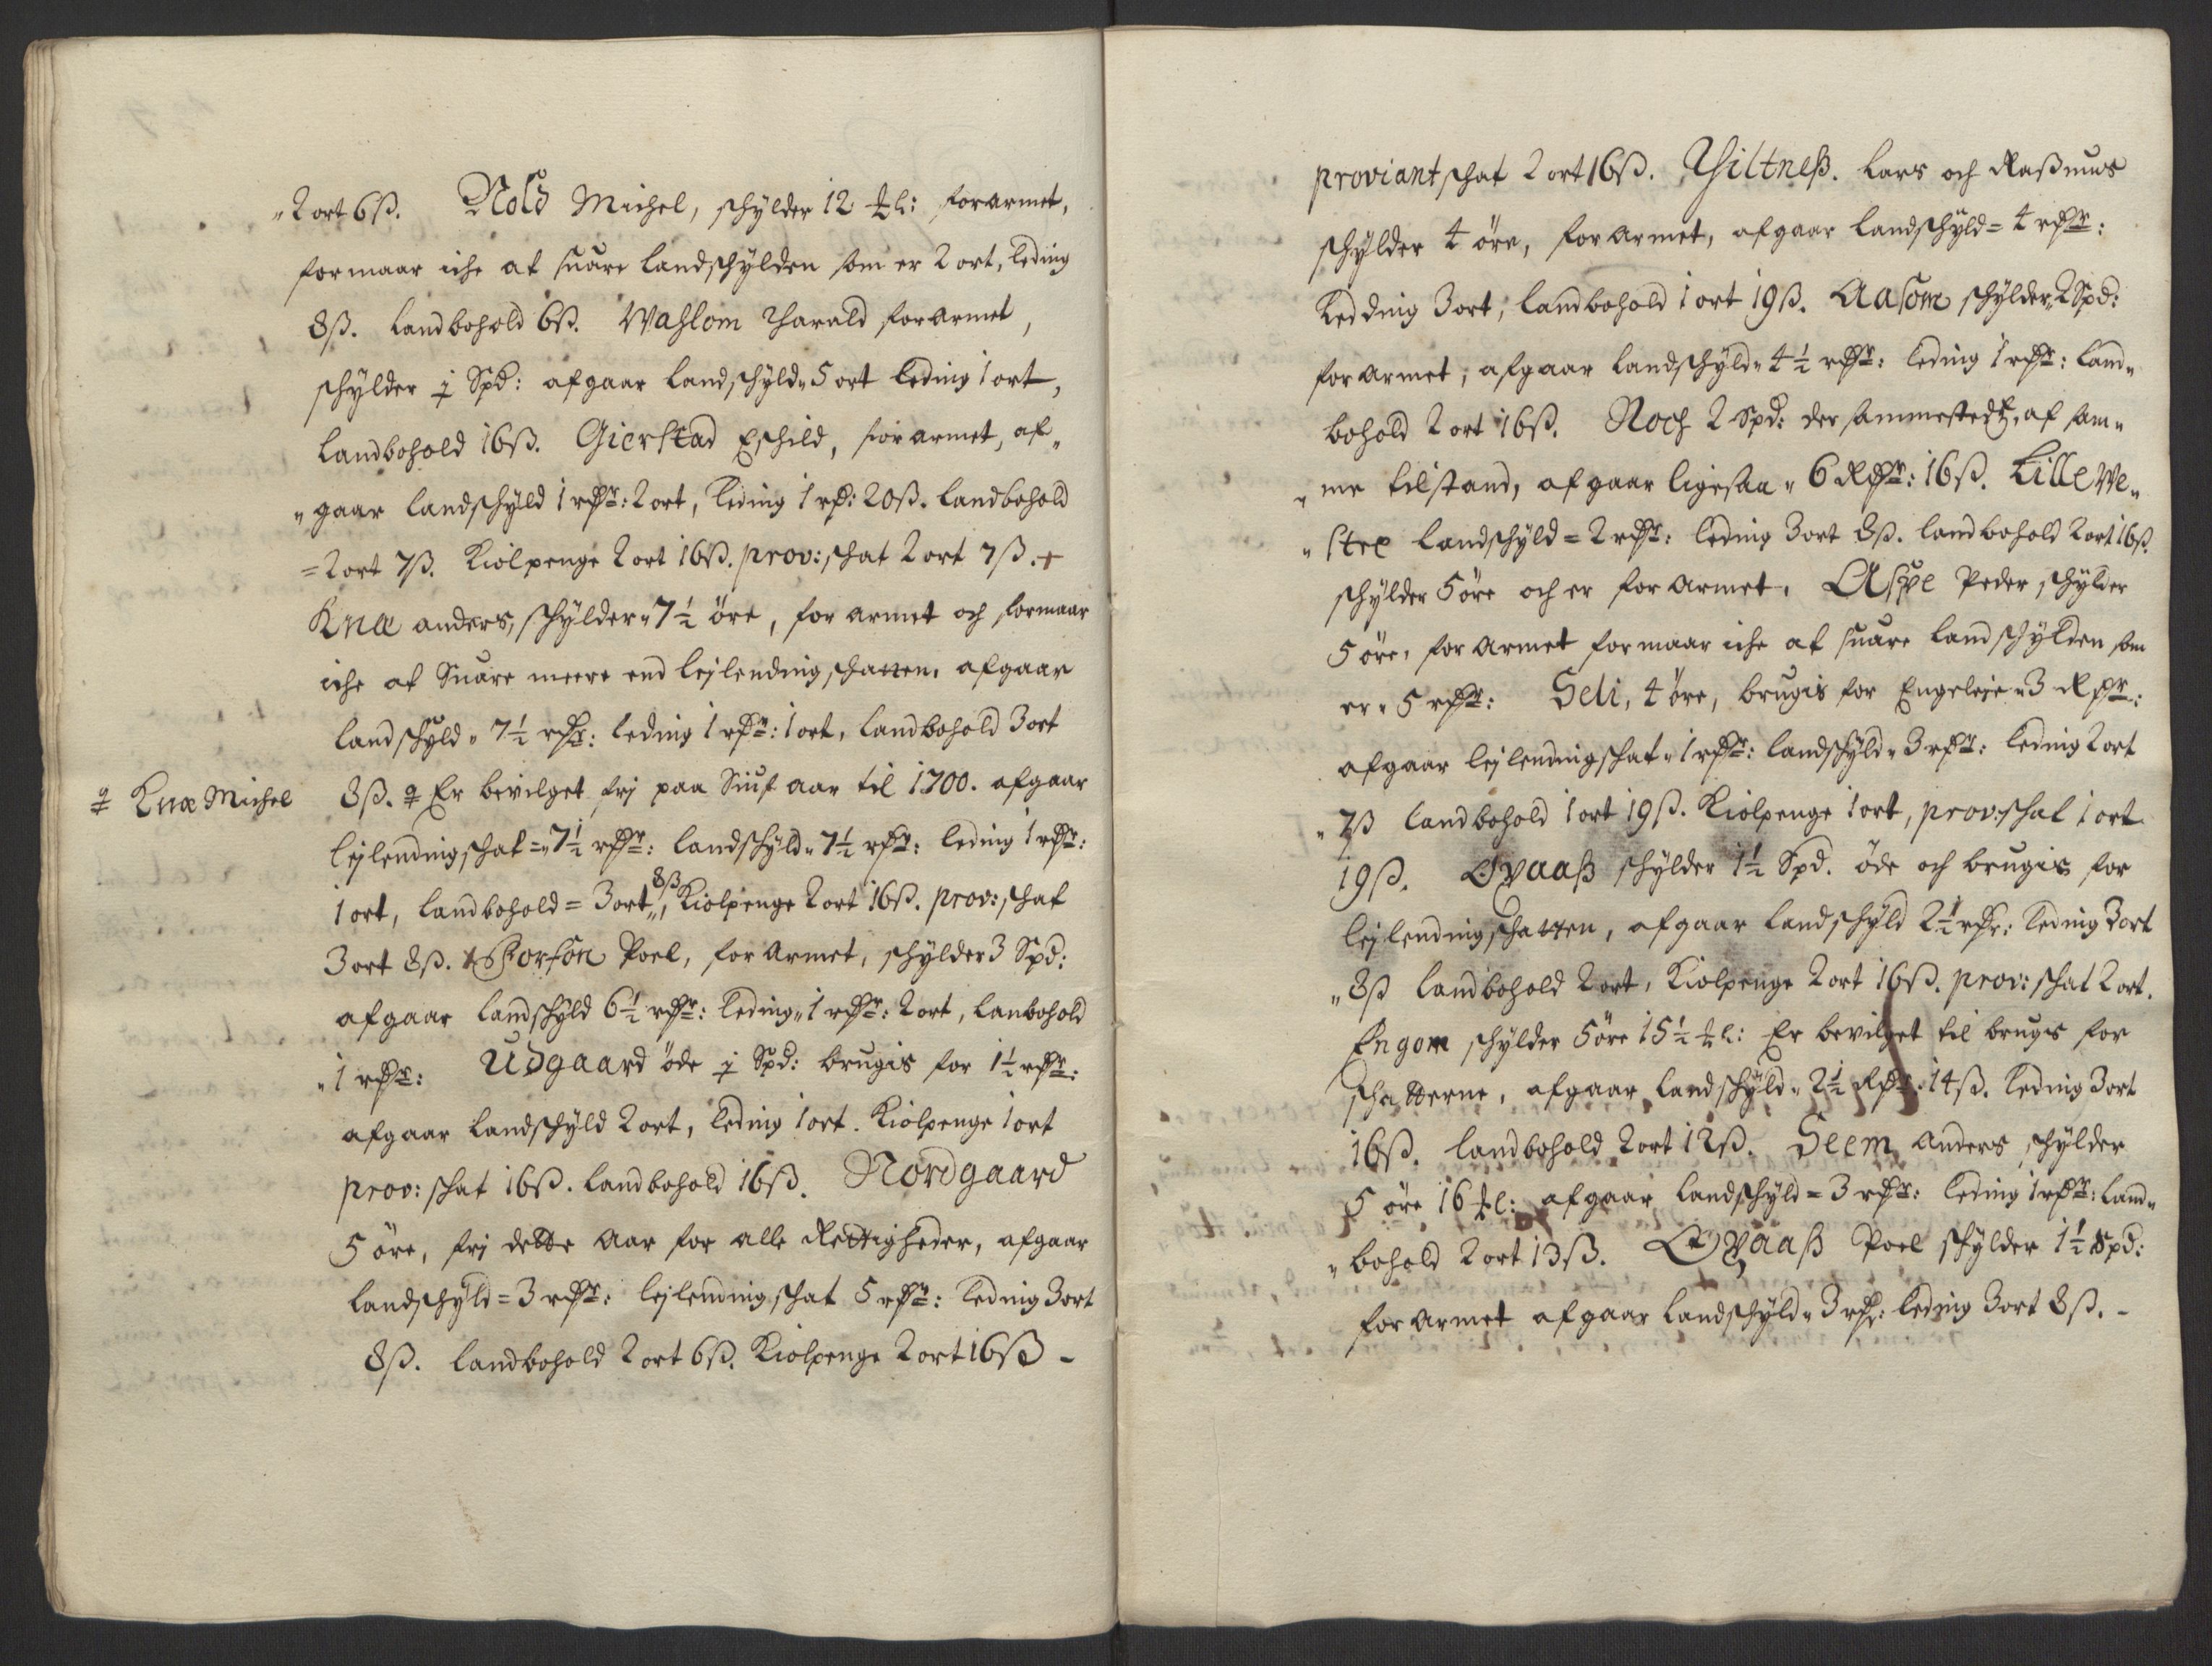 "2 ort 6ß. Nold Michel, schylder 12 ℔l: forarmet,
formaar iche at suare landschylden som er 2 ort, leding
8ß. Landbohold 6ß. Wahlom Harald forarmet,
schylder j Spd: afgaar landschyld" 5 ort leding 1 ort,
landbohold 16ß. Gierstad Eschild, forarmet, af"
"gaar landschyld 1 rdr: 2 ort, leding 1 rd: 20ß. landbohold
=2 ort 7ß. Kiolpenge 2 ort 16ß. prov: schat 2 ort 7ß. +
Knæ anders, schylder" 7½ öre, forarmet och formaar
iche at Suare meere end lejlending schatten. afgaar
landschyld" 7½ rdr: leding 1 rdr: 1 ort, landbohold 3 ort
♀ Knæ Michel 8ß. ♀ Er bevilget frj paa Siuf aar til 1700. afgaar
lejlending schat=" 7½ rdr: landschyld" 7½ rdr: leding 1 rdr:
1 ort, landbohold = 3 ort" 8ß, Kiolpenge 2 ort 16ß. prov: schat
3 ort 8ß. Poel, forarmet, schylder 3 Spd:
afgaar landschyld 6½ rdr: leding" 1 rdr: 2 ort, lanbohold
"1 rdr: Udgaard öde j Spd: brugis for 1½ rdr:
afgaar landschyld 2 ort, leding 1 ort. Kiolpenge 1 ort
prov: schat 16ß. landbohold 16ß. Nordgaard
5 öre, frj dette aar for alle Rettigheder, afgaar
landschyld = 3 rdr: lejlending schat 5 rdr: leding 3 ort
8ß. landbohold 2 ort 6ß. Kiolpenge 2 ort 16ß -
proviant schat 2 ort 16ß. Hiltneß. Lars och Raßmus
schylder 4 öre, forarmet, afgaar landschyld = 4 rdr:
Ledding 3 ort, landbohold 1 ort 19ß. Aasom schylder" 2 Spd:
forarmet, afgaar landschyld" 4½ rdr: leding 1 rdr: land"
bohold 2 ort 16ß. Noch 2 Spd: der sammestedtz, af sam"
"me tilstand, afgaar ligesaa" 6 Rdr: 16ß. Lille We"
"stre landschyld = 2 rdr: leding 3 ort 8ß. landbohold 2 ort 16ß.
schylder 5 öre och er forarmet. Aspe Peder schylder
5 öre, forarmet formaar iche at suare landschylden som
er" 5 rdr: Seli, 4 öre, brugis for Engeleje" 3 Rdr:
afgaar lejlending schat" 1 rdr: landschyld" 3 rdr: leding 2 ort
"7ß landbohold 1 ort 19ß. Kiolpenge 1 ort, prov: schat 1 ort
19ß. Qvaaß schylder 1½ Spd. öde och brugis for
lejlending schatten, afgaar landschyld 2½ rdr: leding 3 ort
"8ß landbohold 2 ort, Kiolpenge 2 ort 16ß. prov: schat 2 ort.
Engom schylder 5 öre 15½ ℔l: Er bevilget til brugs for
schatterne, afgaar landschyld" 2½ Rdr: 14ß. leding 3 ort
16ß. landbohold 2 ort 12ß. Seem anders schylder
5 öre 16 ℔l: afgaar landschyld = 3 rdr: leding 1 rdr: land"
"bohold 2 ort 13ß. Qvaaß Poel schylder 1½ Spd:
forarmet afgaar landschyld" 3 rdr: leding 3 ort 8ß. -